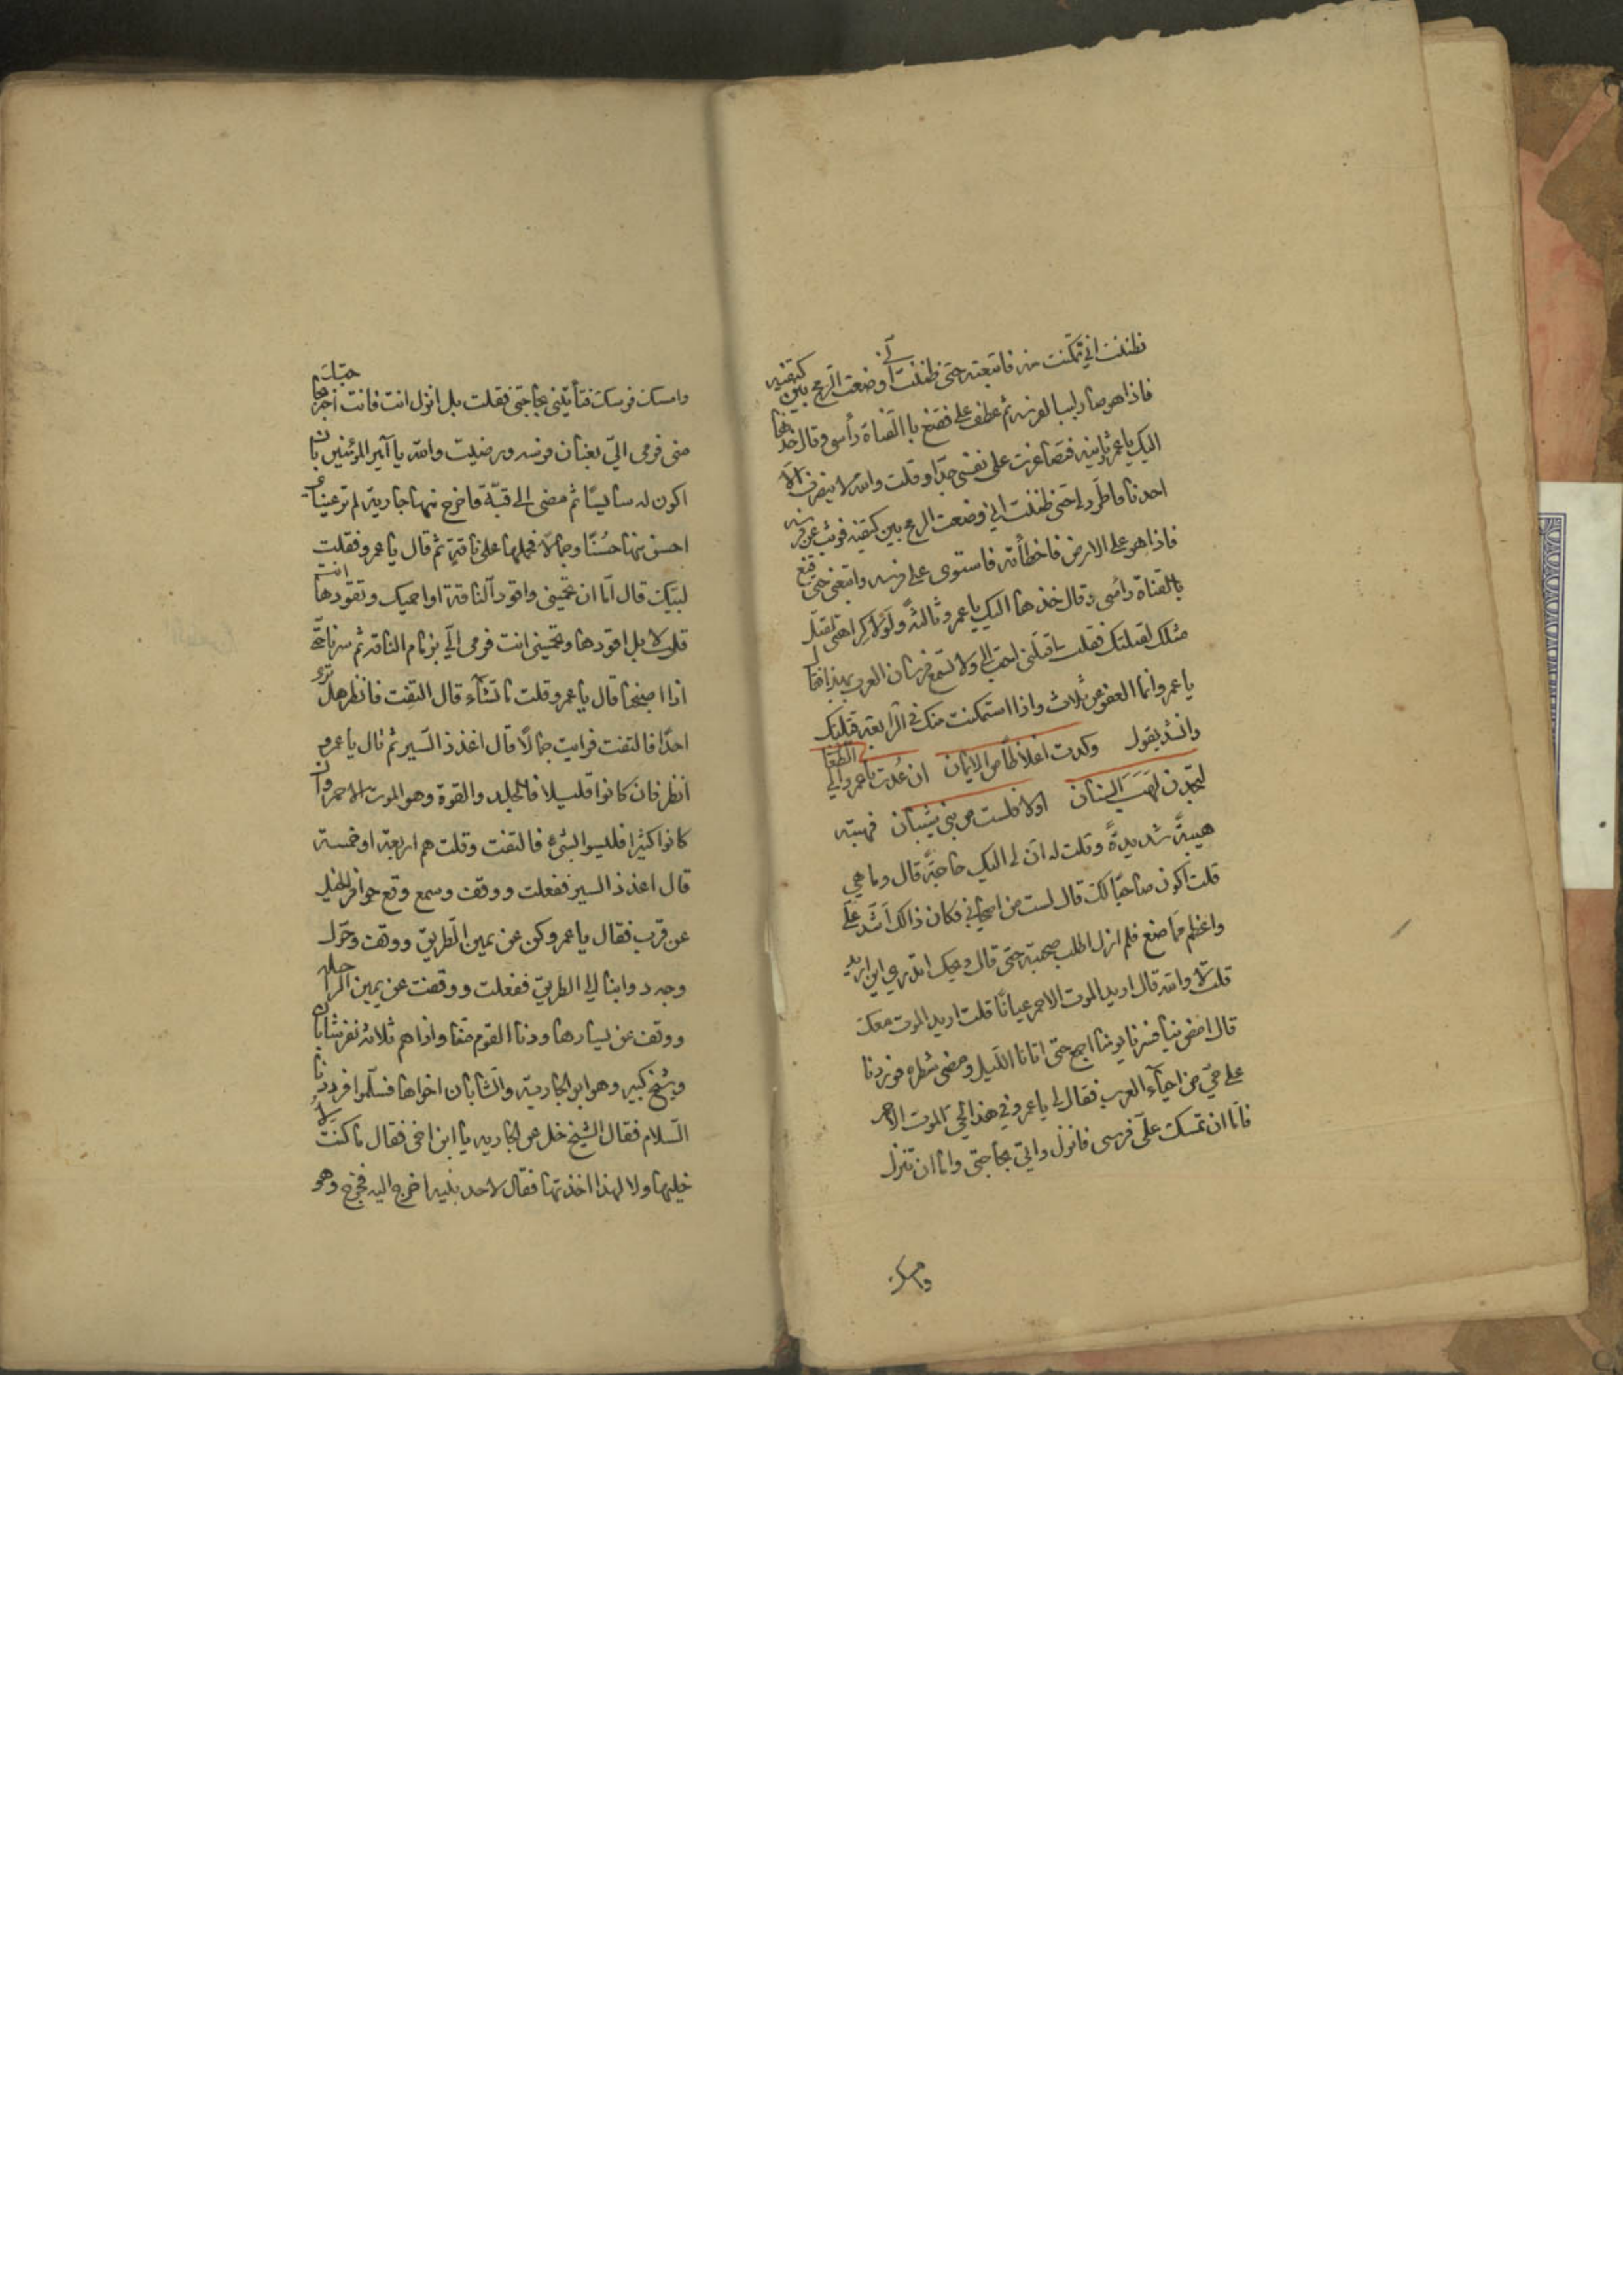 فظننت اني تمكنت منه فاتبعته حتى ظننت أني وضعت الرمح بين كتفيه
فاذا هو صار لببا لفرسه ثم عطف علي فقنع بالقناة رأسي وقال خذها
اليك يا عمر ثانية فتصاغرت على نفسي جدا وقلت والله لا ينصرف الا
احدنا فاطرد لي حتى ظننت اني وضعت الرمح بين كتفيه فوثب عن فرسه
فاذا هو على الارض فاخطأته فاستوى على فرسه واتبعني حتى قنع
بالقناة رأسي وقال خذها اليك يا عمرو ثالثة ولولا كراهتي لقتل
مثلك لقتلتك فقلت اقتلني احب الي ولا تسمع فرسان العرب بهذا فقال
يا عمرو انما العفو عن ثلاث واذا استمكنت منك في الرابعة قتلتك
وانشد يقول وكدت اغلاظا من الايمان ان عدت يا عمرو الي الطعان
لتجدن لهب السنان اولا فلست من بني شيبان فهبته
هيبةً شديدةً وقلت له ان لي اليك حاجة قال وما هي
قلت اكون صاحبا لك قال لست من اصحابي فكان ذالك اشد علي
واعظم مما صنع فلم ازل اطلب صحبته حتى قال ويحك اتدري اين اريد
قلت لا والله قال اريد الموت الاحمر عيانا قلت اريد الموت معك
قال امض بنا فسرنا يومنا اجمع حتى اتانا الليل ومضى شطره فوردنا
على حي من احياء العرب فقال لي يا عمرو في هذا الحي الموت الاحمر
فاما ان تمسك علي فرسي فانزل واتي بحاجتي واما ان تنزل
وامسك
وامسك فرسك فتأتيني بحاجتي فقلت بل انزل انت فانت اخبر بحاجتك
مني فرمى الي بعنان فرسه ورضيت والله يا امير المؤمنين بان
اكون له سايسا ثم مضى الى قبة فاخرج منها جارية لم تر عيناي
احسن منها حسنا وجمالا فحملها على ناقة ثم قال يا عمرو فقلت
لبيك قال اما ان تحميني واقود الناقة او احميك وتقودها انت
قلت لا بل اقودها وتحميني انت فرمى الي بزمام الناقة ثم سرنا حتى
اذا اصبحنا قال يا عمرو قلت ما تشآء قال التفت فانظر هل ترى
احدا فالتفت فرايت جمالا قال اغذذ السير ثم قال يا عمرو
انظر فان كانوا قليلا فالجلد والقوة وهو الموت الاحمر وان
كانوا كثيرا فليسوا بشيء فالتفت وقلت هم اربعة او خمسة
قال اغذذ السير ففعلت ووقف وسمع وقع حوافر الخيل
عن قرب فقال يا عمرو كن عن يمين الطريق ووقف وحول
وجه دوابنا الى الطريق ففعلت ووقفت عن يمين الراحلة
ووقف عن يسارها ودنا القوم منا واذا هم ثلاثة نفر شابان
وشيخ كبير وهو ابو الجارية والشابان اخواها فسلموا فرددنا
السلام فقال الشيخ خل عن الجارية يا ابن اخي فقال ما كنت لا
خليها ولا لهذا اخذتها فقال لاحد بنيه اخرج اليه فخرج وهو